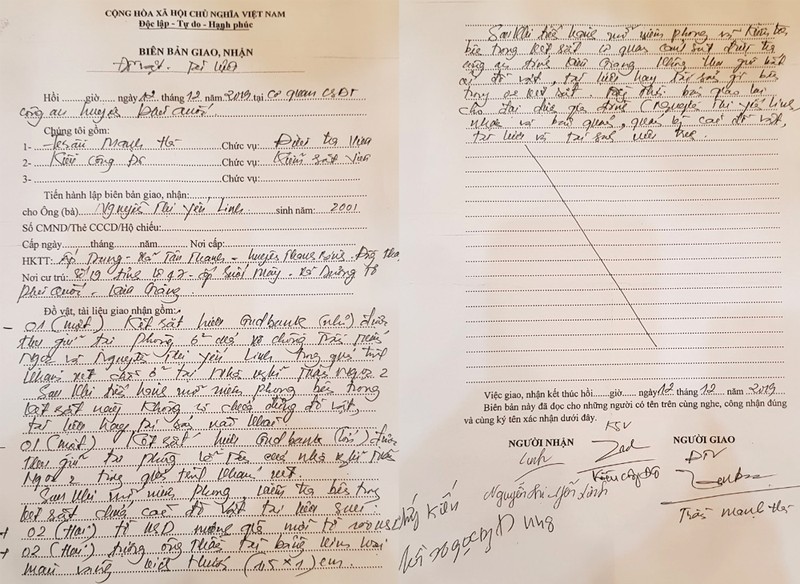 CỘNG HÒA XÃ HỘI CHỦ NGHĨA VIỆT NAM
Độc lập - Tự do - Hạnh phúc
BIÊN BẢN GIAO, NHẬN
Đồ vật - Tài liệu
Hồi......giờ......ngày 12 tháng 12 năm 2019 tại Cơ quan CSĐT
Công an huyện Phú Quốc.
Chúng tôi gồm:
1- Trần Mạnh Hà Chức vụ: Điều tra viên
2- Kiều Công Chức vụ: Kiểm sát viên
3- Chức vụ:
Tiến hành lập biên bản giao, nhận:
cho Ông (bà) Nguyễn Thị Yến Linh sinh năm: 2001
Số CMND/Thẻ CCCD/Hộ chiếu:
Cấp ngày......tháng......năm......Nơi cấp:
HKTT: Ấp Trung - Xã Tân Thạnh - huyện Thanh Bình - Đồng Tháp
Nơi cư trú: Số 19 đường ấp Suối Mây - Xã Dương Tơ
Phú Quốc - Kiên Giang.
Đồ vật, tài liệu giao nhận gồm:
- 01 (một) Két sắt hiệu Gudbank (nhỏ) được
thu giữ tại phòng ở của vợ chồng Trần
Ngọc và Nguyễn Thị Yến Linh trong quá trình
khám xét chỗ ở tại Nhà nghỉ Ngọc 2
Sau khi tiến hành mở niêm phong bên trong
két sắt này không có chứa đựng đồ vật,
tài liệu hay tài sản nào khác
01 (một) Két sắt hiệu Gudbank (lớn) được
thu giữ tại phòng của nhà nghỉ
Ngọc 2 trong quá trình khám xét.
Sau khi mở niêm phong, kiểm tra bên trong
két sắt chứa các đồ vật tài liệu
+ 02 (Hai) tờ USD mệnh giá mỗi tờ 100 USD
+ 02 (Hai) tượng ông thần tài bằng kim loại
màu vàng kích thước (1,5 x 1) cm.
Sau khi tiến hành mở niêm phong và kiểm tra
bên trong két sắt cơ quan cảnh sát điều tra
công an tỉnh Kiên Giang không thu giữ bất
cứ đồ vật, tài liệu hay tài sản gì bên
trong két sắt. bàn giao lại
cho đại diện gia đình (Nguyễn Thị Yến Linh)
nhận và bảo quản, quản lý các đồ vật,
tài liệu và tài sản nêu trên.
Việc giao, nhận kết thúc hồi......giờ......ngày 12 tháng 12 năm 2019
Biên bản này đã đọc cho những người có tên trên cùng nghe, công nhận đúng
và cùng ký tên xác nhận dưới đây.
KSV
NGƯỜI NHẬN
NGƯỜI GIAO
Linh
ĐTV
Nguyễn Thị Yến Linh
Trần Mạnh Hà